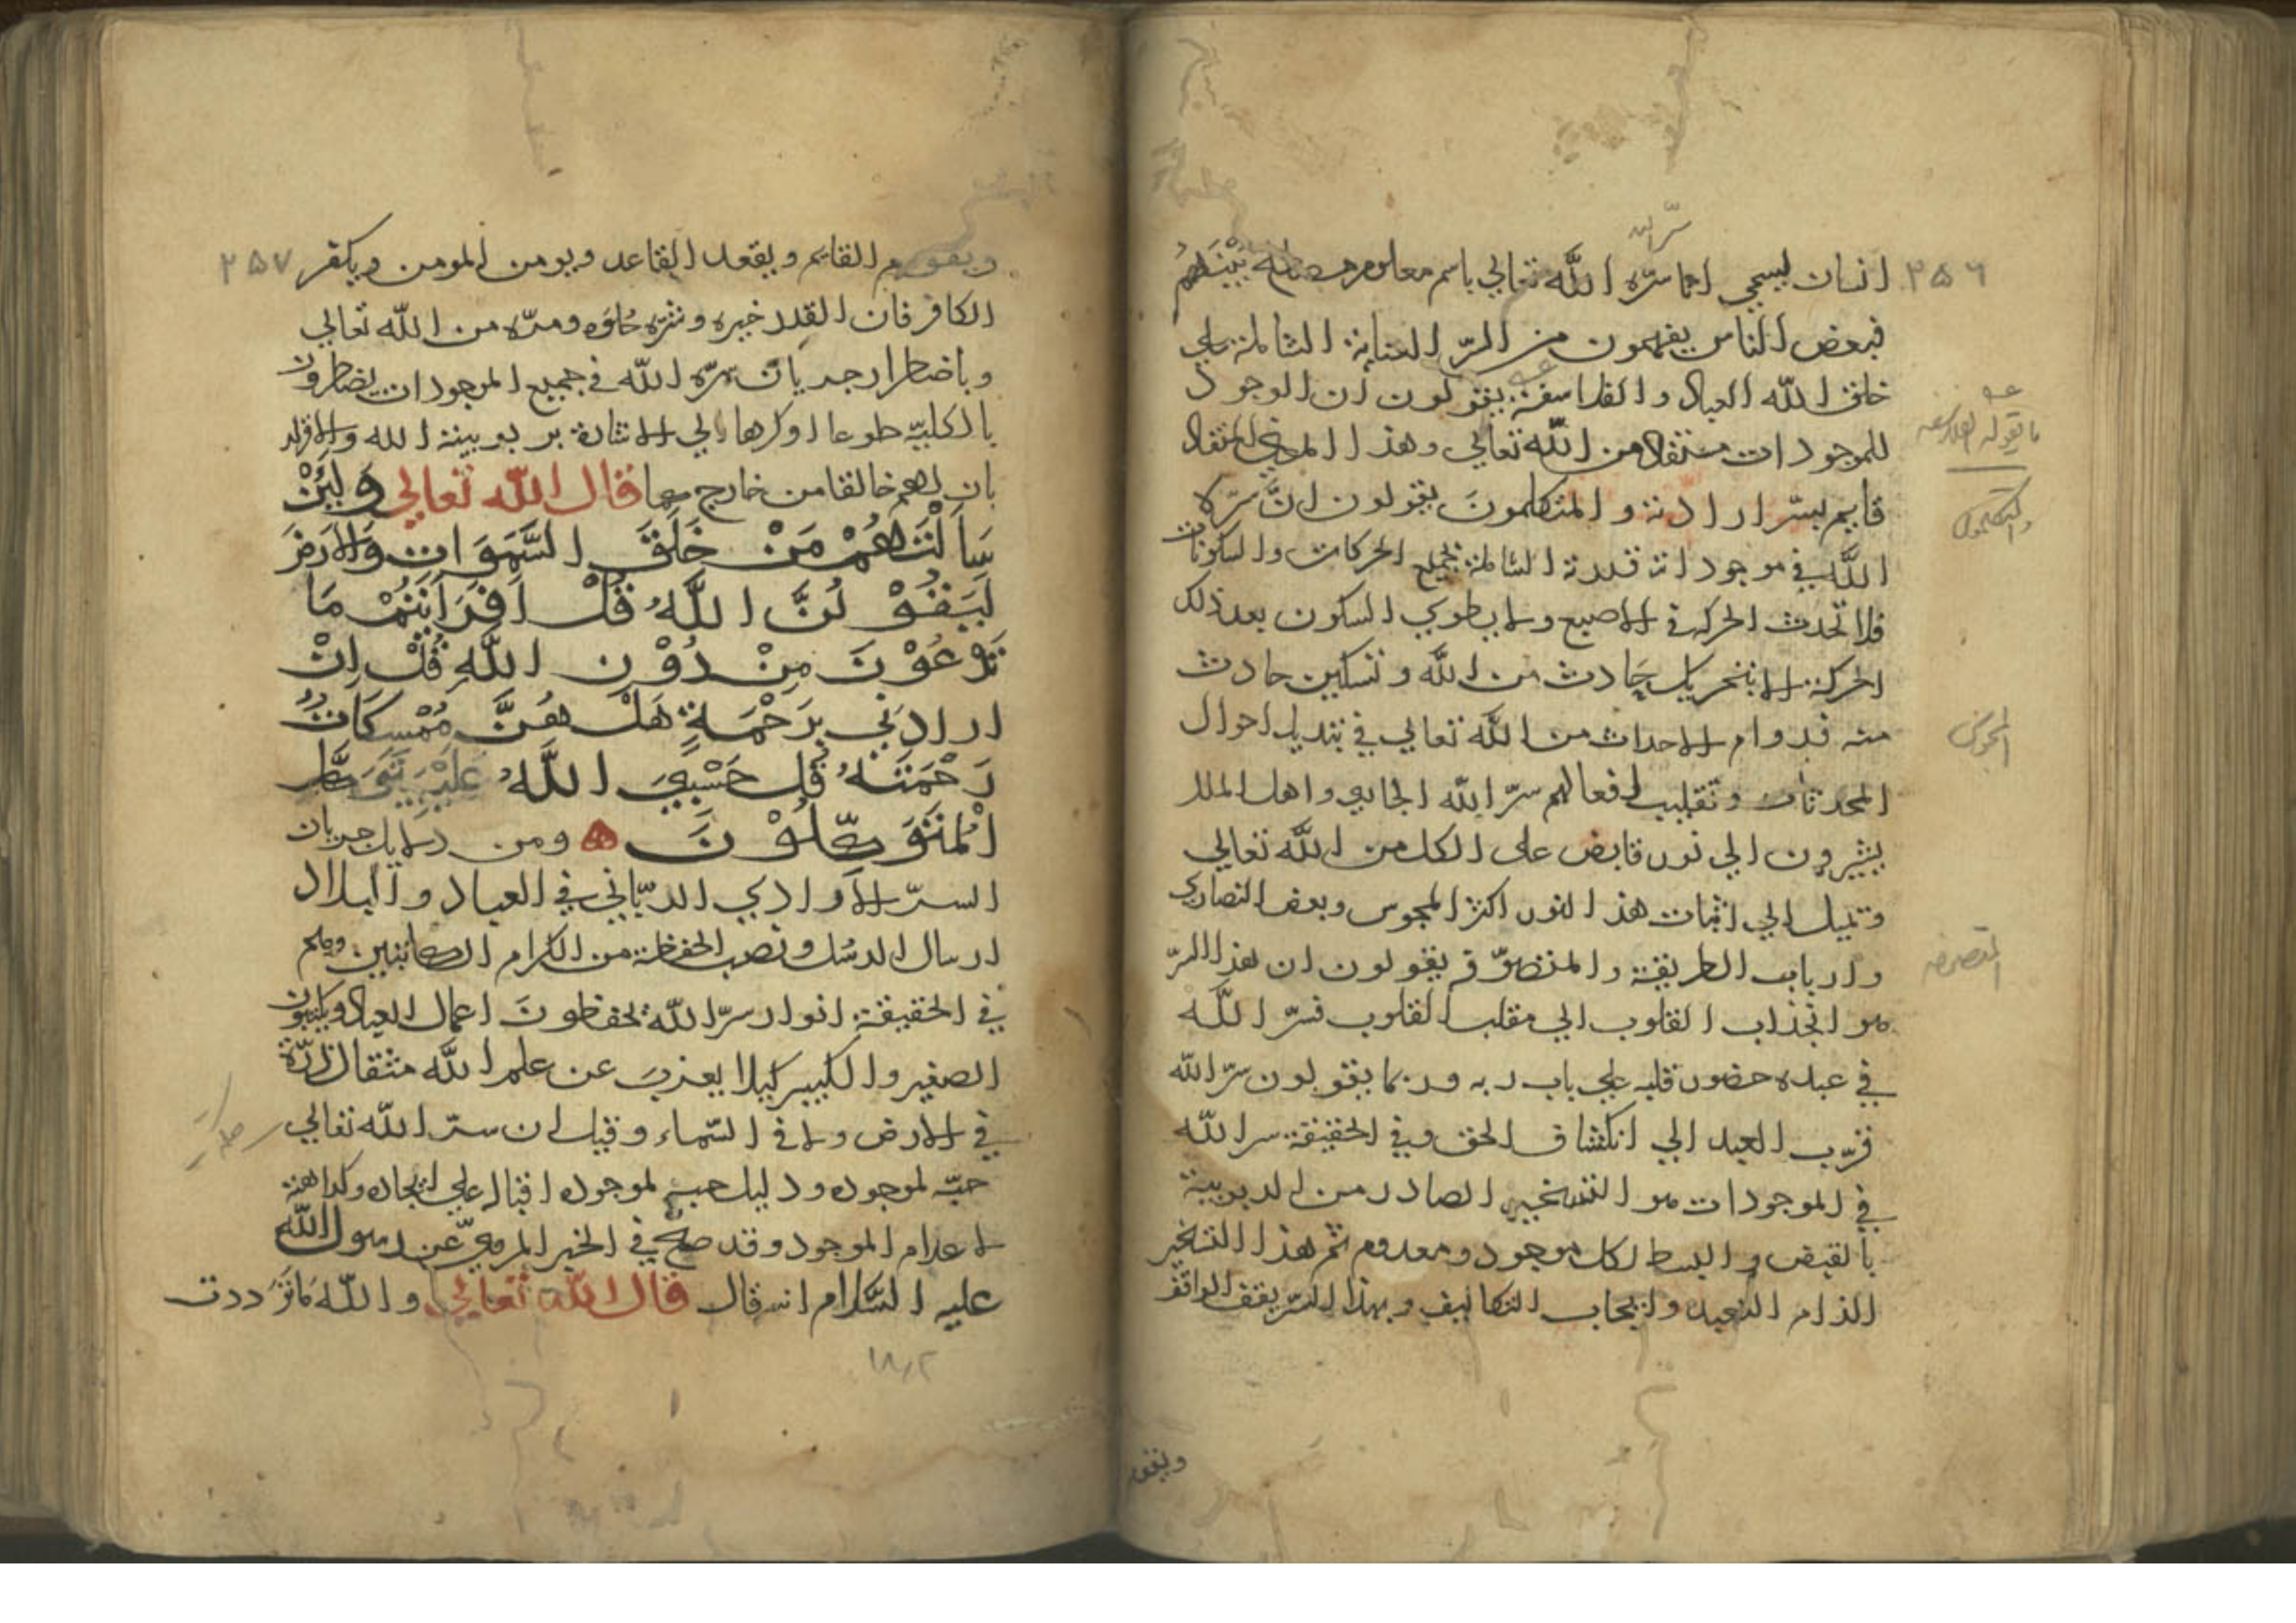 سر الله
٢٥٦
انسان يسمي اما سره الله تعالي باسم معلوم بينهم
فبعض الناس يفهمون من السر العناية الشاملة علي
خلق الله العباد والفلاسفة يقولون ان الوجود
للموجودات مستفاد من الله تعالي وهذا المعني
قايم بسر ارادته والمتكلمون يقولون انَّ سر
اللَّه في موجوداته قدرته الشاملة بجميع الحركات والسكونات
فلا تحدث الحركة في الاصبع ولا يطوي السكون بعد ذلك
الحركة الا بتحريك حادث من اللَّه وتسكين حادث
منه فدوام الاحداث من اللَّه تعالي في تبديل احوال
المحدثات وتقليب افعالهم سرّ الله الجاري واهل الملل
يشيرون الي نور قابض علي الكل من اللَّه تعالي
وتميل الي اثبات هذا النور اكثر المجوس وبعض النصاري
وارباب الطريقة والمتصوّفة يقولون ان هذا السرّ
هو انجذاب القلوب الي مقلب القلوب فسرّ اللَّه
في عبده حضور قلبه علي باب ربه وربما يقولون سرّ الله
قرّب العبد الي انكشاف الحق وفي الحقيقة سر اللَّه
في الموجودات هو التسخير الصادر من الربوبية
بالقبض والبسط لكل موجود ومعدوم ثم هذا التسخير
الزام التعبد وايجاب التكاليف وبهذا السرّ يقف الواقف
ويقوم
ما يقوله الفلاسفة
والمتكلمون
المجوس
المتصوفه
٢٥٧
ويقوم القايم ويقعد القاعد ويومن المومن ويكفر
الكافر فان القدر خيره وشره حلوه ومرّه من اللّه تعالي
وباضطرار جريان سرّه اللّه في جميع الموجودات يضطرون
بالكلية طوعا اوكرها الي الاشارة بربوبية الله والاقرار
بان لهم خالقا من خارج قال اللّه تعالي وَلَئِنْ
سَأَلْتَهُمْ مَنْ خَلَقَ السَّمَوَاتِ وَالاَرْضَ
لَيَقُوْلُنَّ اللَّهُ قُلْ اَفَرَاَيْتُمْ مَا
تَدْعُوْنَ مِنْ دُوْنِ اللَّهِ قُلْ اِنْ
ارادَنِي بِرَحْمَةٍ هَلْ هُنَّ مُمْسِكَاتُ
رَحْمَتِهُ قُل حَسْبِيَ اللَّهُ عَلَيْهِ يَتَوَكَّل
الْمُتَوَكِّلُوْنَ ومن دلايل جريان
السرّ الارادي الربّاني في العباد والبلاد
ارسال الرسل ونصب الحفظة من الكرام الكاتبين وهم
في الحقيقة انوار سرّ اللَّه يحفظونَ اعمال العباد ويكتبون
الصغير والكبير كيلا يعزب عن علم اللَّه مثقال ذرّة
في الارض ولا في السّماء وقيل ان سرّ اللَّه تعالي
حبّه لموجوده ودليل حبه لموجوده اقباله علي ايجاده وكراهته
لاعدام الموجود وقد صح في الخبر المروي عن رسول اللَّه
عليه السّلام انه قال قال اللَّه تعالي واللَّه مَا تَرَددت
١٨٢